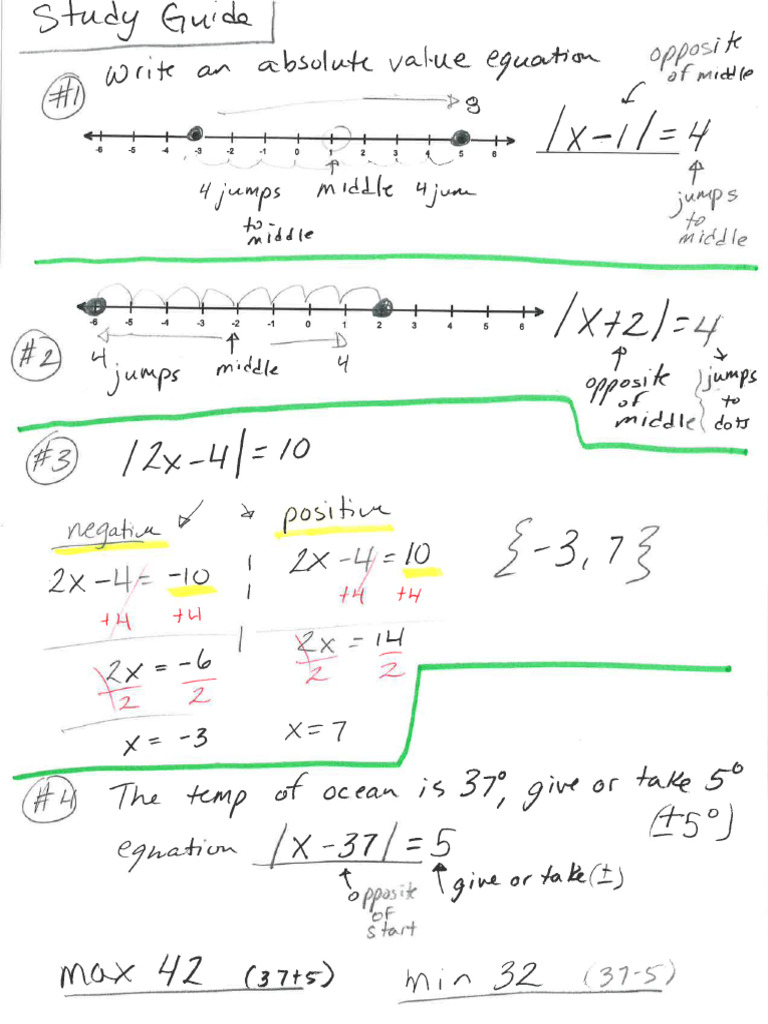 Study Guide
#1 Write an absolute value equation
opposite
of middle
8
-6 -5 -4 -3 -2 -1 0 1 2 3 4 5 6
|x-1|=4
4 jumps middle 4 jum
to
middle
jumps
to
middle
#2
-6 -5 -4 -3 -2 -1 0 1 2 3 4 5 6
|x+2|=4
4 jumps middle 4
opposite
of
middle
jumps
to
dots
#3 |2x-4|=10
negative positive
2x-4=-10 2x-4=10
+4 +4 +4 +4
2x = -6 2x = 14
2 2 2 2
x = -3 x = 7
{-3, 7}
#4 The temp of ocean is 37°, give or take 5°
(±5°)
equation |x-37|=5
opposite
of
start
give or take (±)
max 42 (37+5) min 32 (37-5)